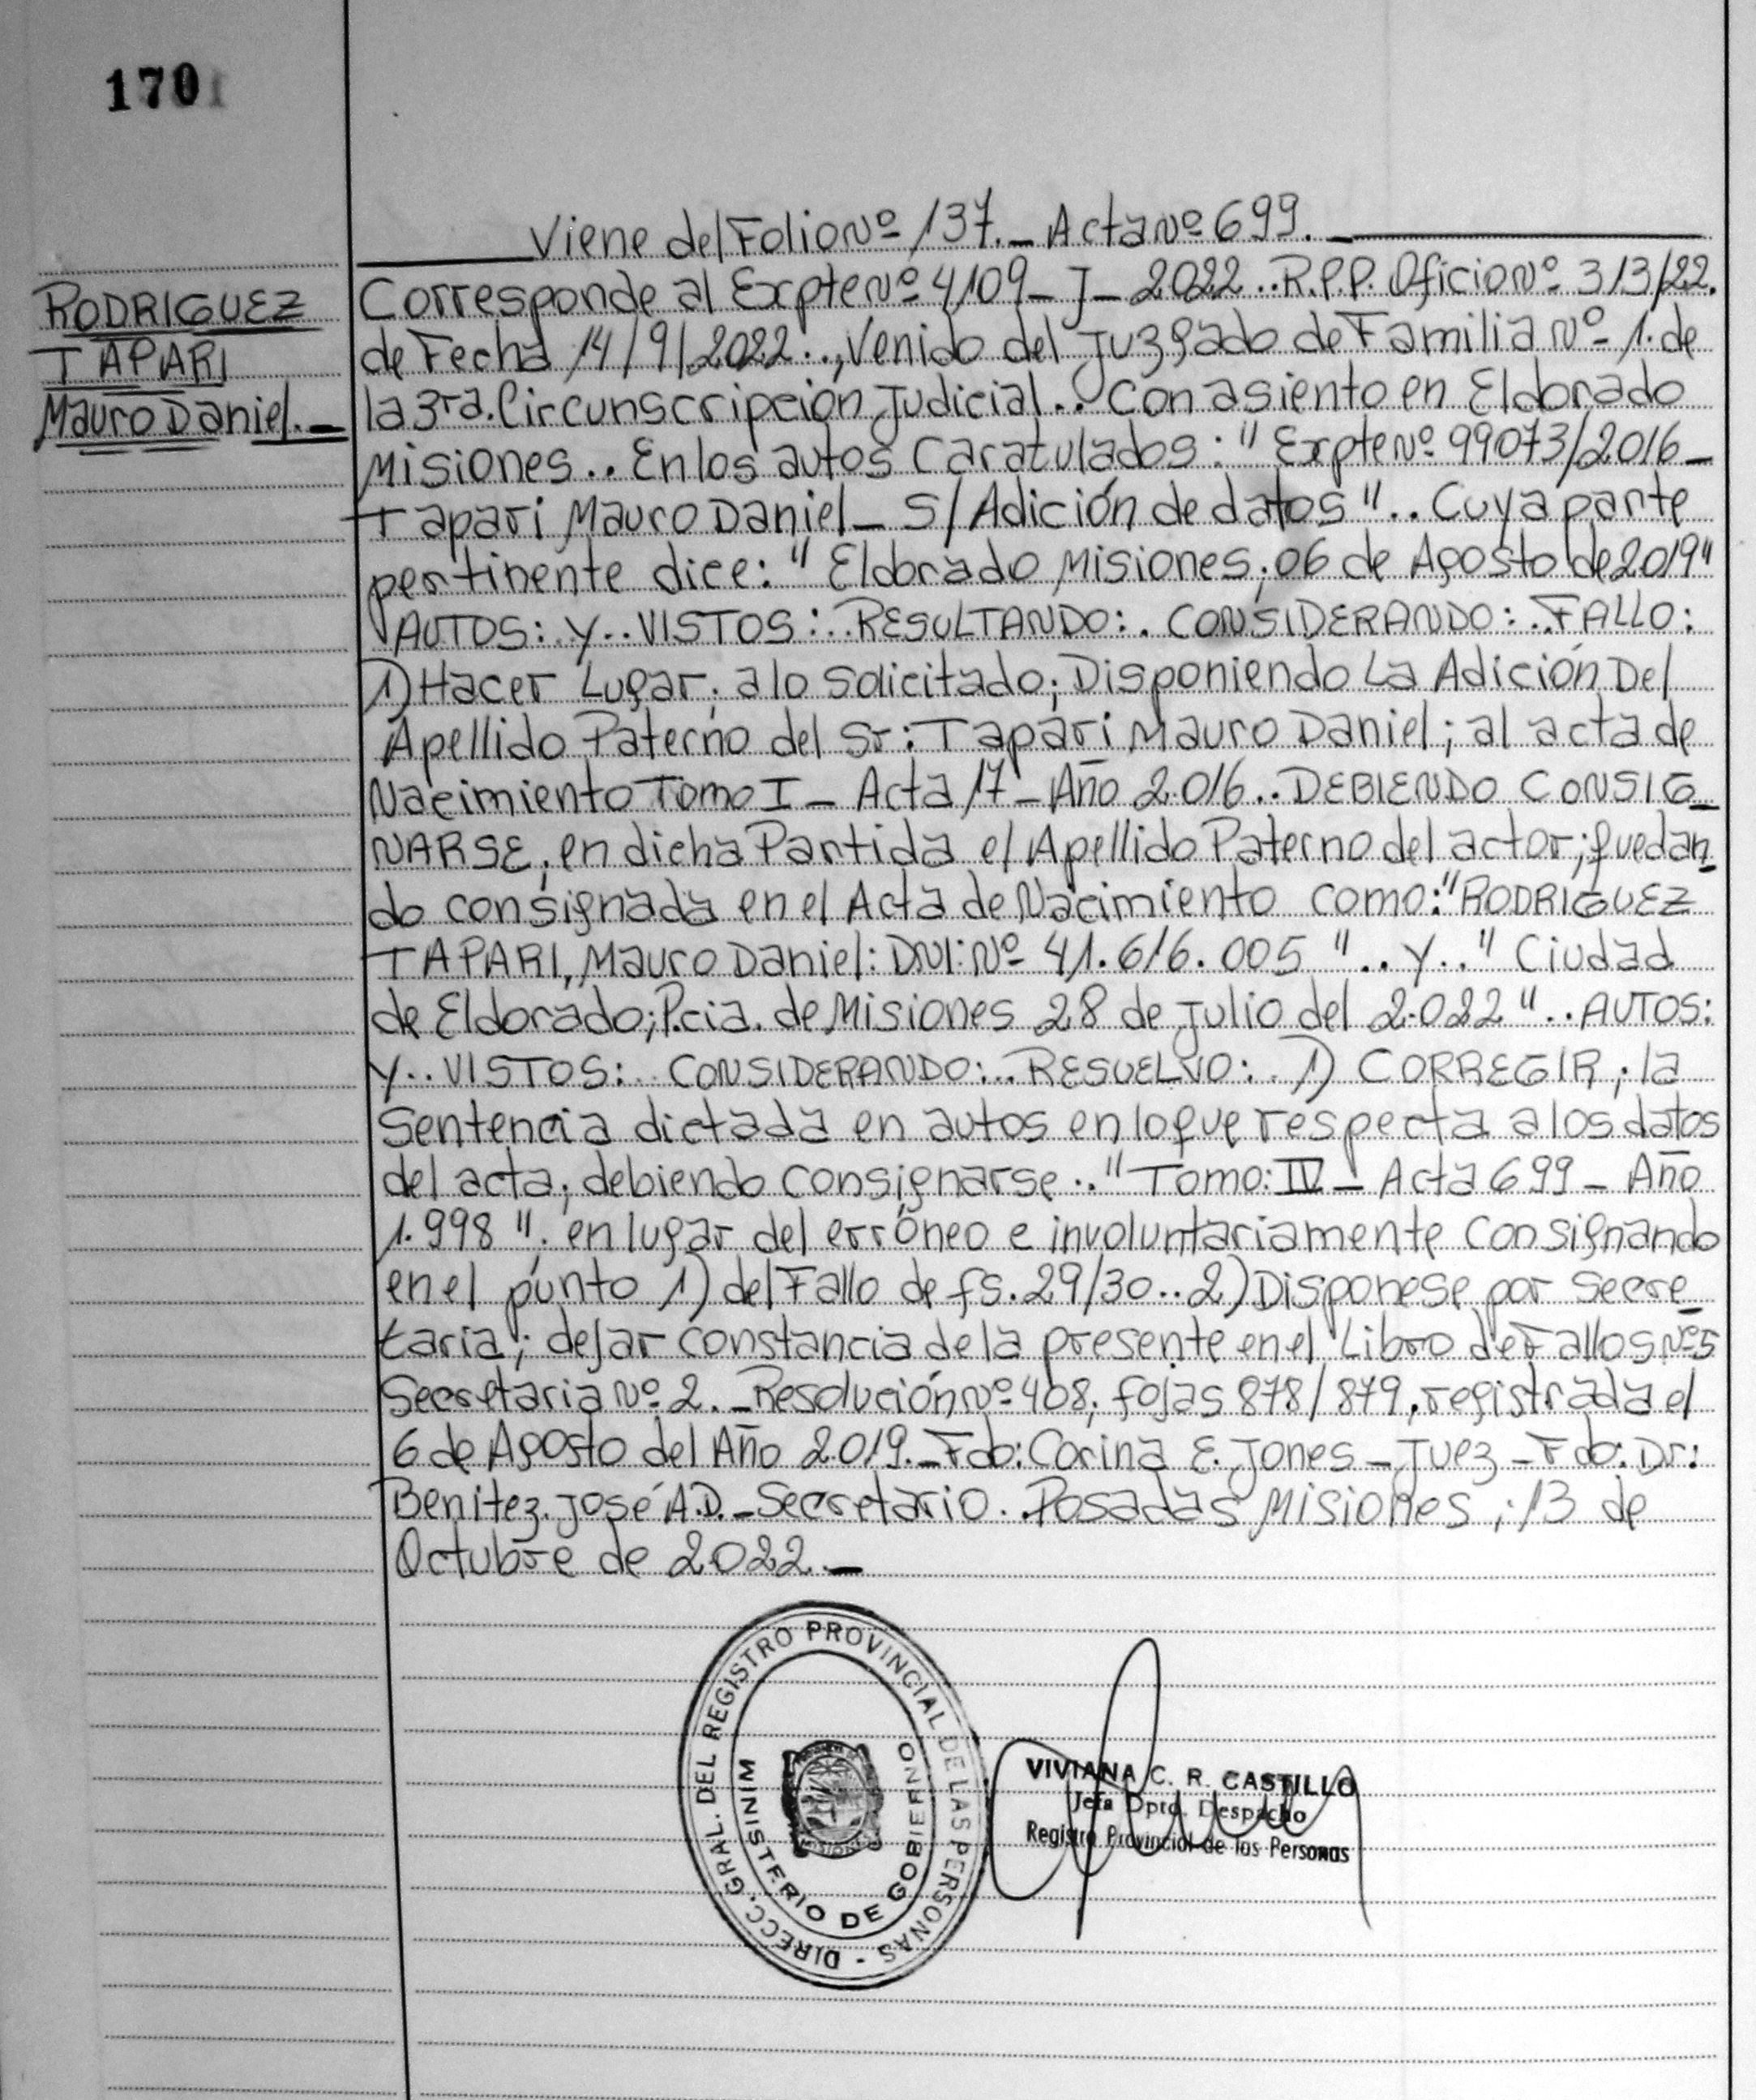 170
Viene del Folio Nº 137._ Acta Nº 699._
RODRIGUEZ
TAPARI
Mauro Daniel._
Corresponde al Expte Nº 4109_J_2022..R.P.P. Oficio Nº 313/22.
de Fecha 14/9/2022.., Venido del Juzgado de Familia Nº 1. de
la 3ra. Circunscripción Judicial.. Con asiento en Eldorado
Misiones.. En los autos Caratulados: "Expte Nº 99073/2016_
Tapari Mauro Daniel_ S/Adición de datos".. Cuya parte
pertinente dice: "Eldorado Misiones; 06 de Agosto de 2019"
AUTOS: Y.. VISTOS:..RESULTANDO:. CONSIDERANDO:.FALLO:
1) Hacer Lugar; a lo Solicitado; Disponiendo La Adición Del
Apellido Paterno del Sr: Tapari Mauro Daniel; al acta de
Nacimiento Tomo I_ Acta 17_ Año 2.016.. DEBIENDO CONSIG_
NARSE; en dicha Partida el Apellido Paterno del actor; quedan_
do consignada en el Acta de Nacimiento como: "RODRIGUEZ
TAPARI, Mauro Daniel: DNI: Nº 41.616.005".. Y.." Ciudad
de Eldorado; Pcia. de Misiones 28 de Julio del 2.022".. AUTOS:
Y.. VISTOS:. CONSIDERANDO:..RESUELVO:. 1) CORREGIR; la
Sentencia dictada en autos en lo que respecta a los datos
del acta; debiendo consignarse.."Tomo: IV_ Acta 699_ Año
1.998"; en lugar del erróneo e involuntariamente Consignando
en el punto 1) del Fallo de fs. 29/30..2) Disponese por Secre_
taria; dejar constancia de la presente en el Libro de Fallos Nº 5
Secretaria Nº 2._Resolución Nº 408; fojas 878/879, registrada el
6 de Agosto del Año 2.019._Fdo: Corina E. Jones_ Juez_ Fdo: Dr:
Benitez José A.D._Secretario. .Posadas Misiones; 13 de
Octubre de 2.022._
DIRECC. GRAL. DEL REGISTRO PROVINCIAL DE LAS PERSONAS -
MINISTERIO DE GOBIERNO
VIVIANA C. R. CASTILLO
Jefa Dpto. Despacho
Registro Provincial de las Personas